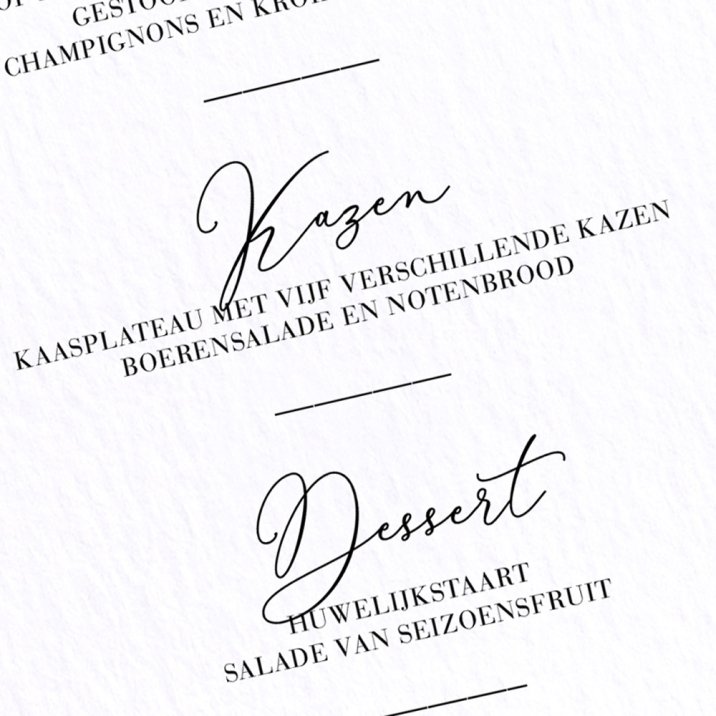 CHAMPIGNONS EN
Kazen
KAASPLATEAU MET VIJF VERSCHILLENDE KAZEN
BOERENSALADE EN NOTENBROOD
Dessert
HUWELIJKSTAART
SALADE VAN SEIZOENSFRUIT